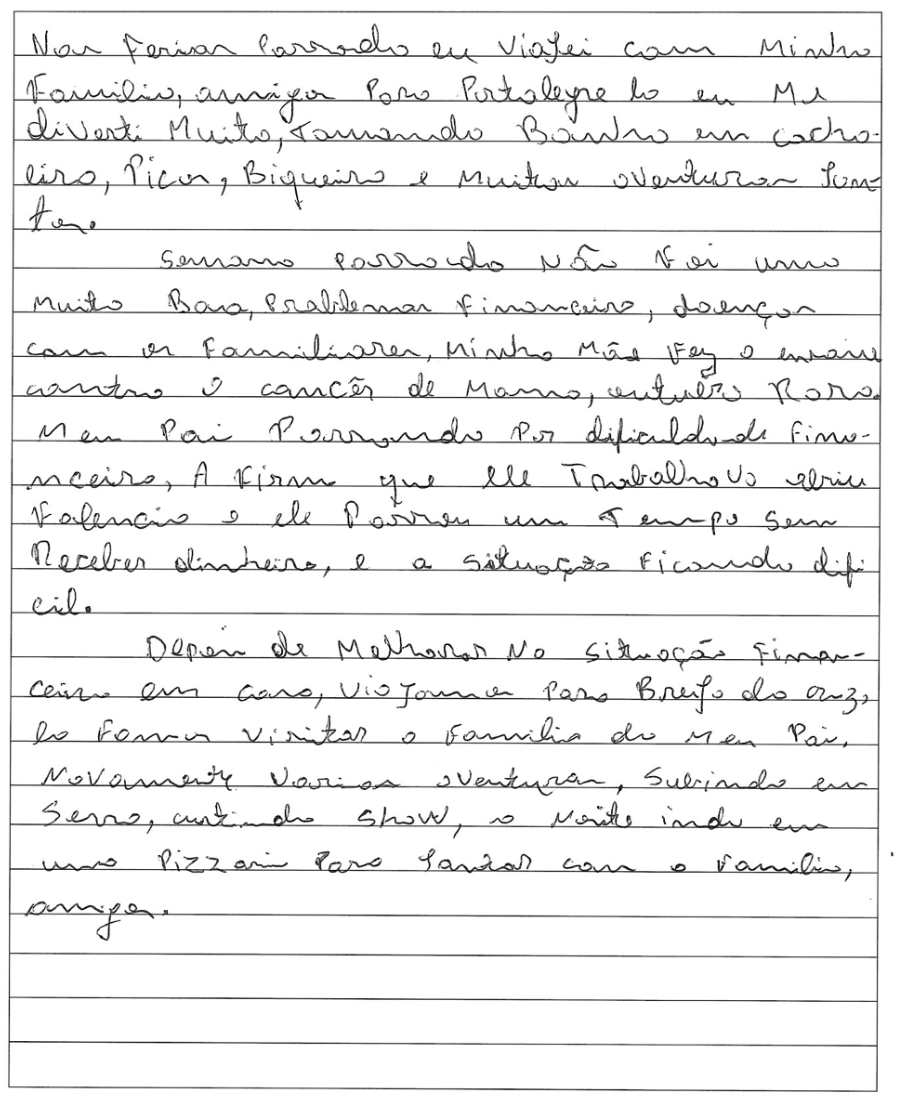 Nas Ferias Passado eu Viajei com Minha
Familia, amigos Para Portalegre la eu Me
diverti Muito, Tomando Banho em cacho-
eira, Picos, Biqueira e Muitas aventuras Jun-
tos.
Semana passada Não Foi uma
Muito Boa, Problemas Financeiro, doenças
com os Familiares, Minha Mãe Fez o exame
contra o cancêr de Mama, outubro Rosa.
Meu Pai Passando Por dificuldade fina-
nceira, A Firma que ele Trabalhava abriu
Falencia e ele Passou um Tempo Sem
Receber dinheiro, e a situação Ficando difi
cil.
Depois de Melhoras Na situação Finan-
ceira em casa, Viajamos Para Brejo do cruz,
la Fomos Visitar a Familia do Meu Pai,
Novamente Varias aventuras, Subindo em
Serra, curtindo Show, a Noite indo em
uma Pizzaria Para Jantar com a Familia,
amigos.